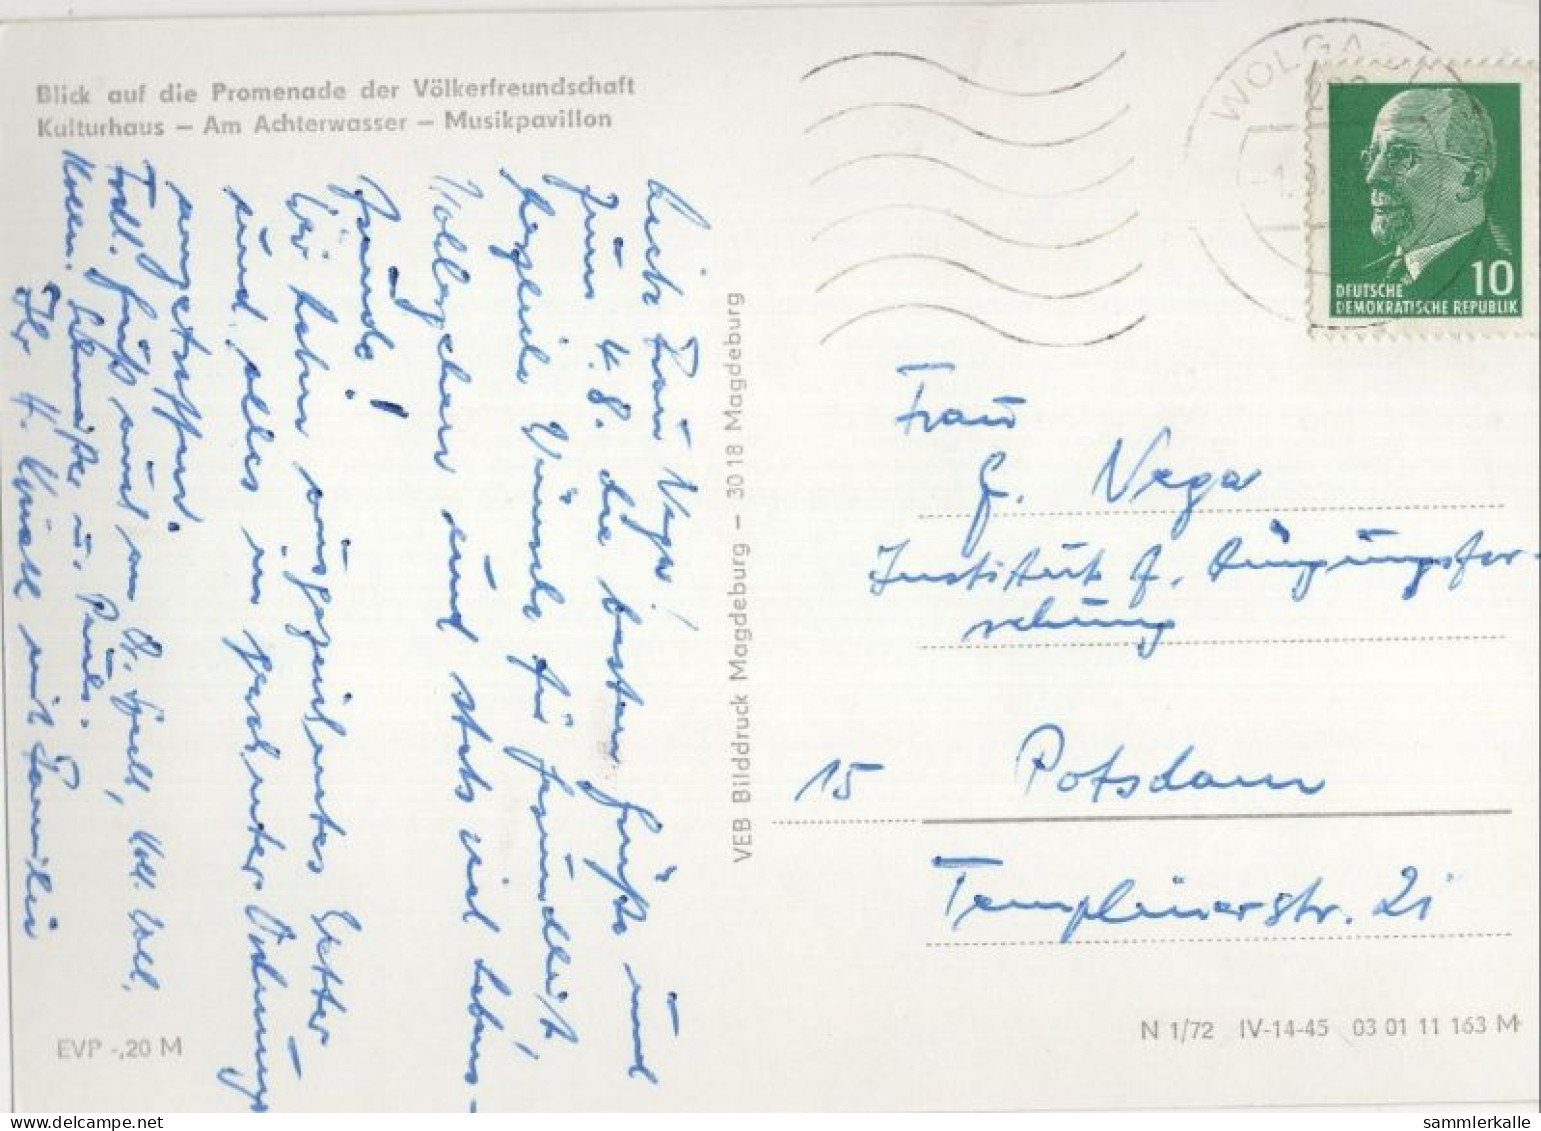 Blick auf die Promenade der Völkerfreundschaft
Kulturhaus – Am Achterwasser – Musikpavillon
Frau Vega!
Zum 4.8. die besten Grüße und
herzliche Wünsche für Gesundheit,
Wohlergehen und stets viel Lebens-
freude!
Wir haben ausgezeichnetes Wetter
und alles in guter Ordnung
angetroffen.
Gruß auch an Dr.
u.
Ihr H. mit Familie
VEB Bilddruck Magdeburg – 3018 Magdeburg
WOLGA
10
DEUTSCHE
DEMOKRATISCHE REPUBLIK
Frau
G. Vega
Institut f. Düngungsfor-
schung
15 Potsdam
Templinerstr. 21
EVP -,20 M
N 1/72 IV-14-45 03 01 11 163 M
delcampe.net
sammlerkalle